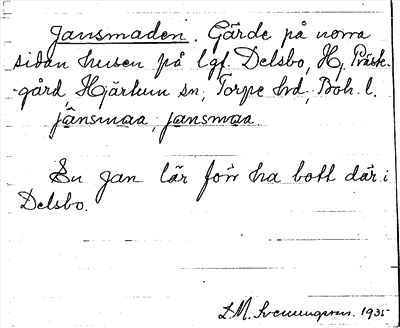 Jansmaden. Gärde på norra
sidan husen på lgf. Delsbo, Hj. Präst-
-gård, Hjärtum sn, Torpe hd, Boh. l.
jånsmaa, jansmaa
En Jan lär förr ha bott där i
Delsbo.
L.M. Svenungsson. 1935